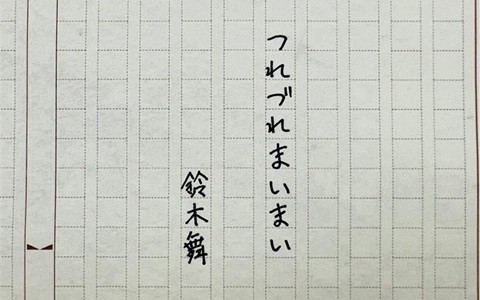 つれづれまいまい
鈴木舞